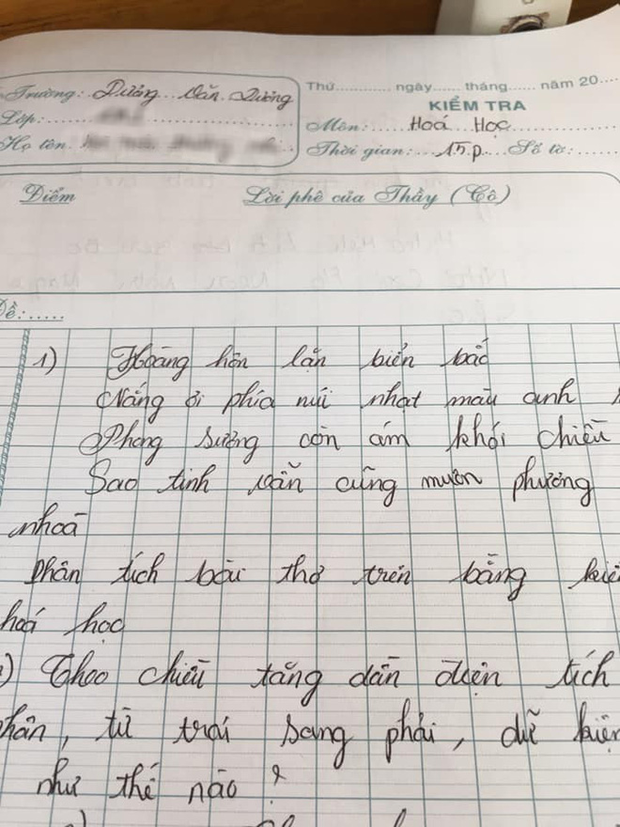 Trường: Dương Văn Dương
Lớp:
Họ tên:
Thứ............ ngày...... tháng...... năm 20....
KIỂM TRA
Môn: Hoá Học
Thời gian: 15p Số tờ:
Điểm
Lời phê của Thầy (Cô)
Đề:.....
1) Hoàng hôn lặn biển bắc
Nắng ở phía núi nhạt màu anh
Phong sương còn ám khói chiều
Sao tinh vẫn cũng muôn phương
nhoà
Phân tích bài thơ trên bằng
hoá học
) Theo chiều tăng dần điện tích
, từ trái sang phải, dữ kiện
như thế nào?